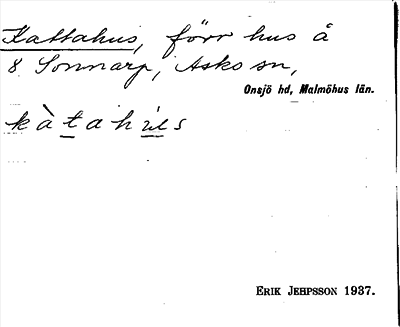 Kattahus, förr hus å
8 Sonnarp, Asks sn,
Onsjö hd, Malmöhus län.
kàtahus
ERIK JEHPSSON 1937.